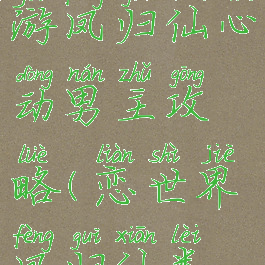 游凤归仙心
dòng nán zhǔ gōng
动男主攻
lüè liàn shì jiè
略(恋世界
fèng guī xiān lèi